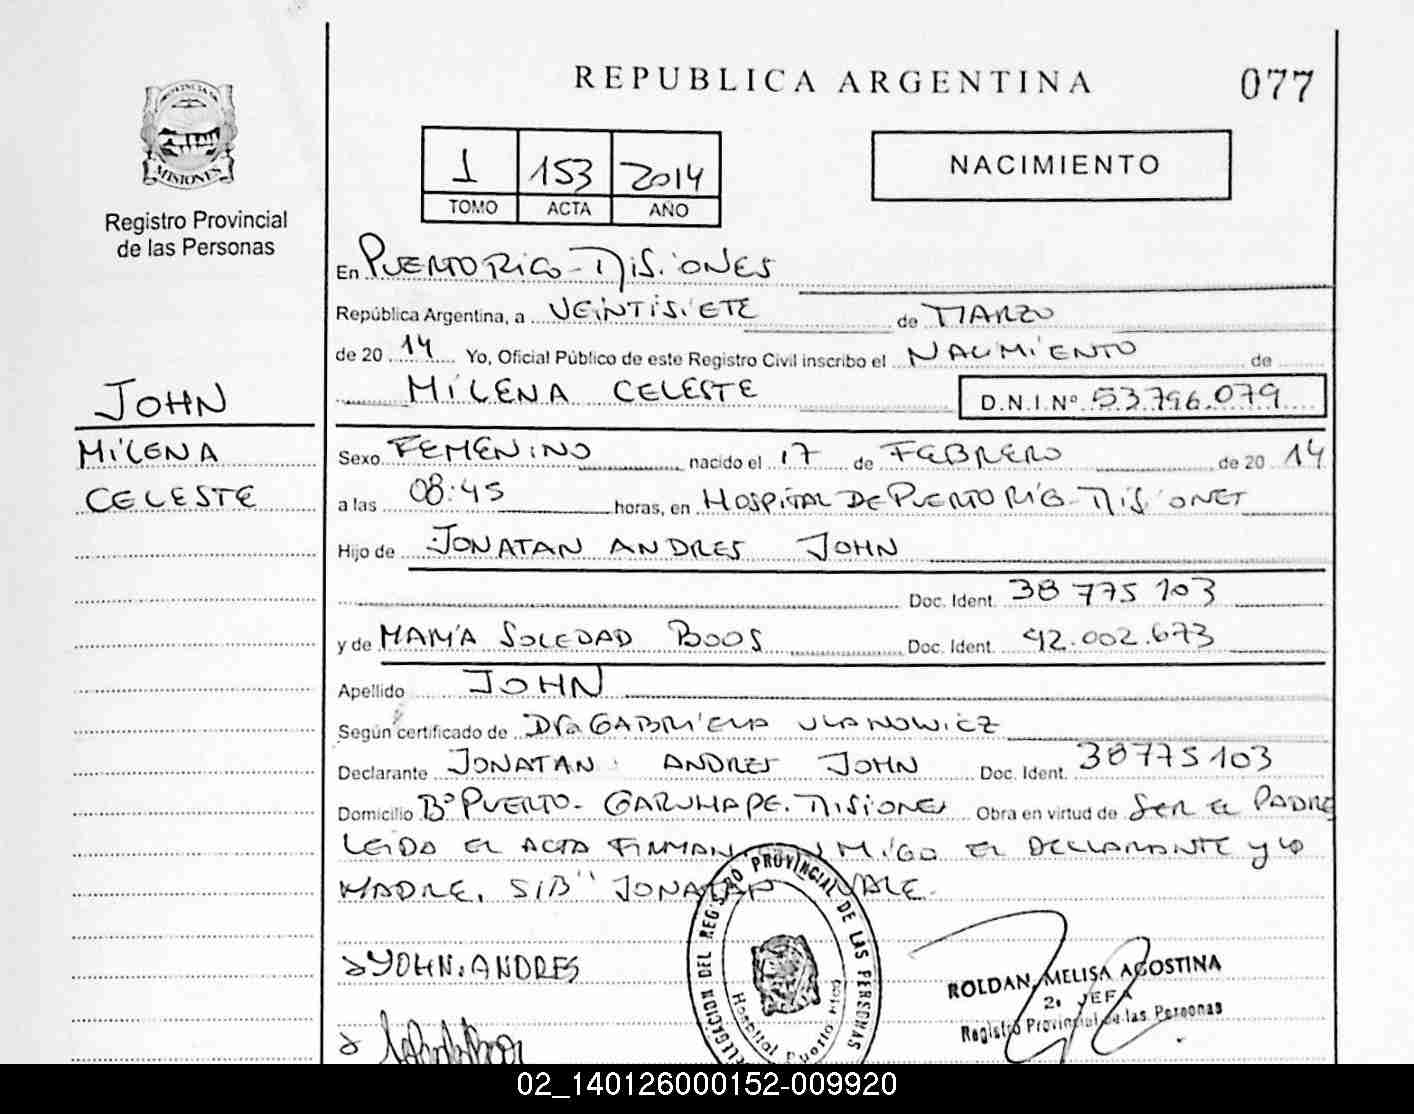 REPUBLICA ARGENTINA
077
PROVINCIA DE
MISIONES
Registro Provincial
de las Personas
1 153 2014
TOMO ACTA AÑO
NACIMIENTO
En PUERTO RICO - MISIONES
República Argentina, a VEINTISIETE de MARZO
de 20 14 Yo, Oficial Público de este Registro Civil inscribo el NACIMIENTO de
MILENA CELESTE D.N.I.Nº 53.796.079
JOHN
MILENA
CELESTE
Sexo FEMENINO nacido el 17 de FEBRERO de 20 14
a las 08:45 horas, en HOSPITAL DE PUERTO RICO - MISIONES
Hijo de JONATAN ANDRES JOHN
Doc. Ident. 38 775 103
y de MARÍA SOLEDAD BOOS Doc. Ident. 42.002.673
Apellido JOHN
Según certificado de Dra GABRIELA ULANOWICZ
Declarante JONATAN ANDRES JOHN Doc. Ident. 38775103
Domicilio Bº PUERTO - GARUHAPE. MISIONES Obra en virtud de SER EL PADRE
LEIDA EL ACTA FIRMAN MIGO EL DECLARANTE y LA
MADRE. S/B" JONATAN VALE.
JOHN. ANDRES
DELEGACION DEL REGISTRO PROVINCIAL DE LAS PERSONAS
Hospital Puerto Rico
ROLDAN, MELISA AGOSTINA
2º JEFA
Registro Provincial de las Personas
02_140126000152-009920